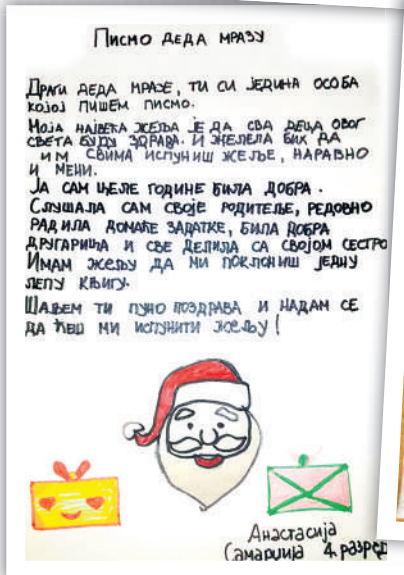 Писмо деда мразу
Драги деда мразе, ти си једина особа
којој пишем писмо.
Моја највећа жеља је да сва деца овог
света буду здрава. И желела бих да
им свима испуниш жеље, наравно
и мени.
Ја сам целе године била добра.
Слушала сам своје родитеље, редовно
радила домаће задатке, била добра
другарица и све делила са својом сестро
Имам жељу да ми поклониш једну
лепу књигу.
Шаљем ти пуно поздрава и надам се
да ћеш ми испунити жељу!
Анастасија
Самарџија 4. разред